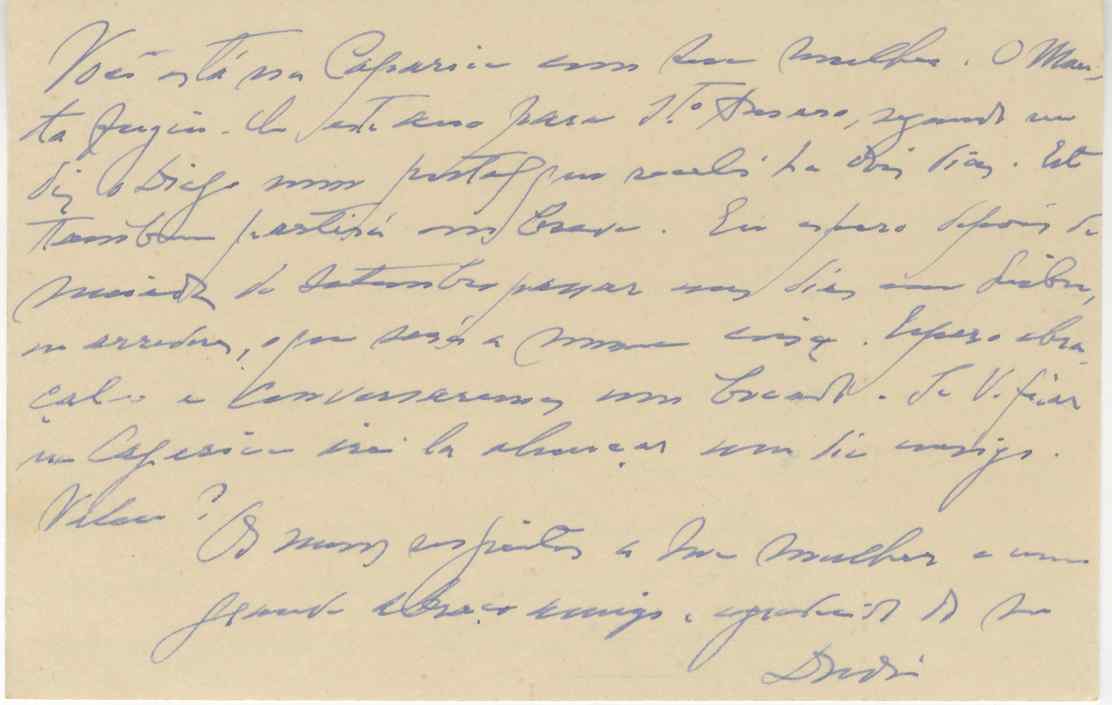 Você está na Caparica com sua mulher. O Mari-
ta fugiu este ano para Sto Amaro, segundo me
diz o Diogo num postal que recebi há dois dias. Este
também partirá em breve. Eu espero depois de
meados de Setembro passar uns dias em Lisboa,
ou arredores, o que será a mesma coisa. Espero abra-
çal-o e conversaremos um bocado. Se V. ficar
na Caparica irei lá almoçar um dia consigo.
Valeu?
Os meus respeitos a sua mulher e um
grande abraço amigo e agradecido do seu